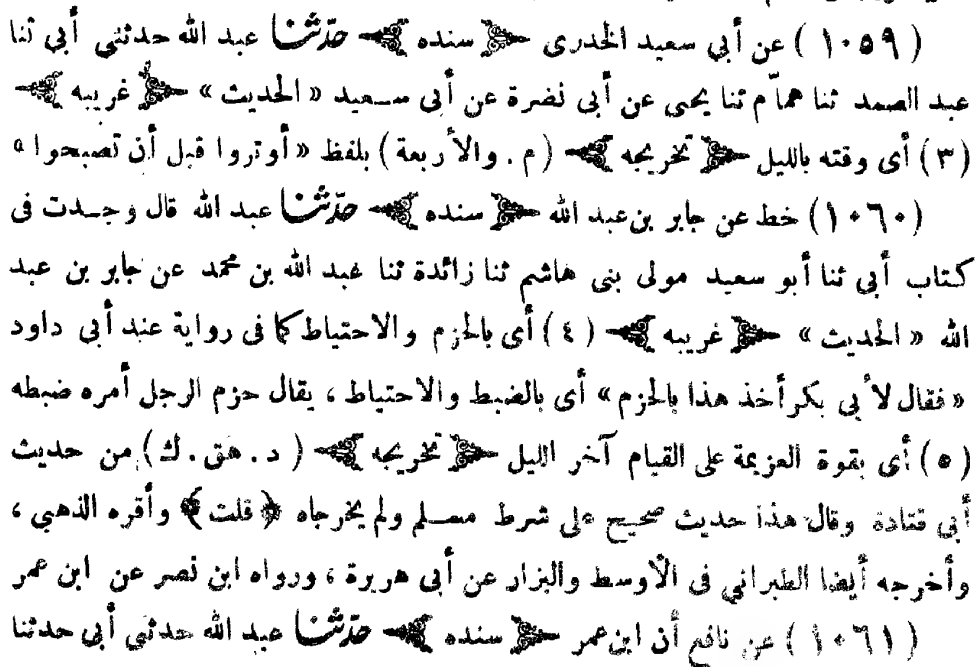 ( ١٠٥٩ ) عن أبي سعيد الخدرى ﴿ سنده ﴾ حدّثنا عبد الله حدثني أبي ثنا
عبد الصمد ثنا همّام ثنا يحيى عن أبى نضرة عن أبى سعيد « الحديث » ﴿ غريبه ﴾
(٣) أى وقته بالليل ﴿ تخريجه ﴾ (م . والأربعة) بلفظ « أوتروا قبل أن تصبحوا »
(١٠٦٠) خط عن جابر بن عبد الله ﴿ سنده ﴾ حدّثنا عبد الله قال وجدت فى
كتاب أبي ثنا أبو سعيد مولى بنى هاشم ثنا زائدة ثنا عبد الله بن محمد عن جابر بن عبد
الله « الحديث » ﴿ غريبه ﴾ (٤) أى بالحزم والاحتياط كما فى رواية عند أبى داود
« فقال لأبى بكر أخذ هذا بالحزم » أى بالضبط والاحتياط ، يقال حزم الرجل أمره ضبطه
(٥) أى بقوة العزيمة على القيام آخر الليل ﴿ تخريجه ﴾ (د . هق . ك) من حديث
أبي قتادة وقال هذا حديث صحيح على شرط مسلم ولم يخرجاه ﴿ قلت ﴾ وأقره الذهبي ،
وأخرجه أيضا الطبراني فى الأوسط والبزار عن أبى هريرة ، ورواه ابن نصر عن ابن عمر
( ١٠٦١ ) عن نافع أن ابن عمر ﴿ سنده ﴾ حدّثنا عبد الله حدثني أبي حدثنا